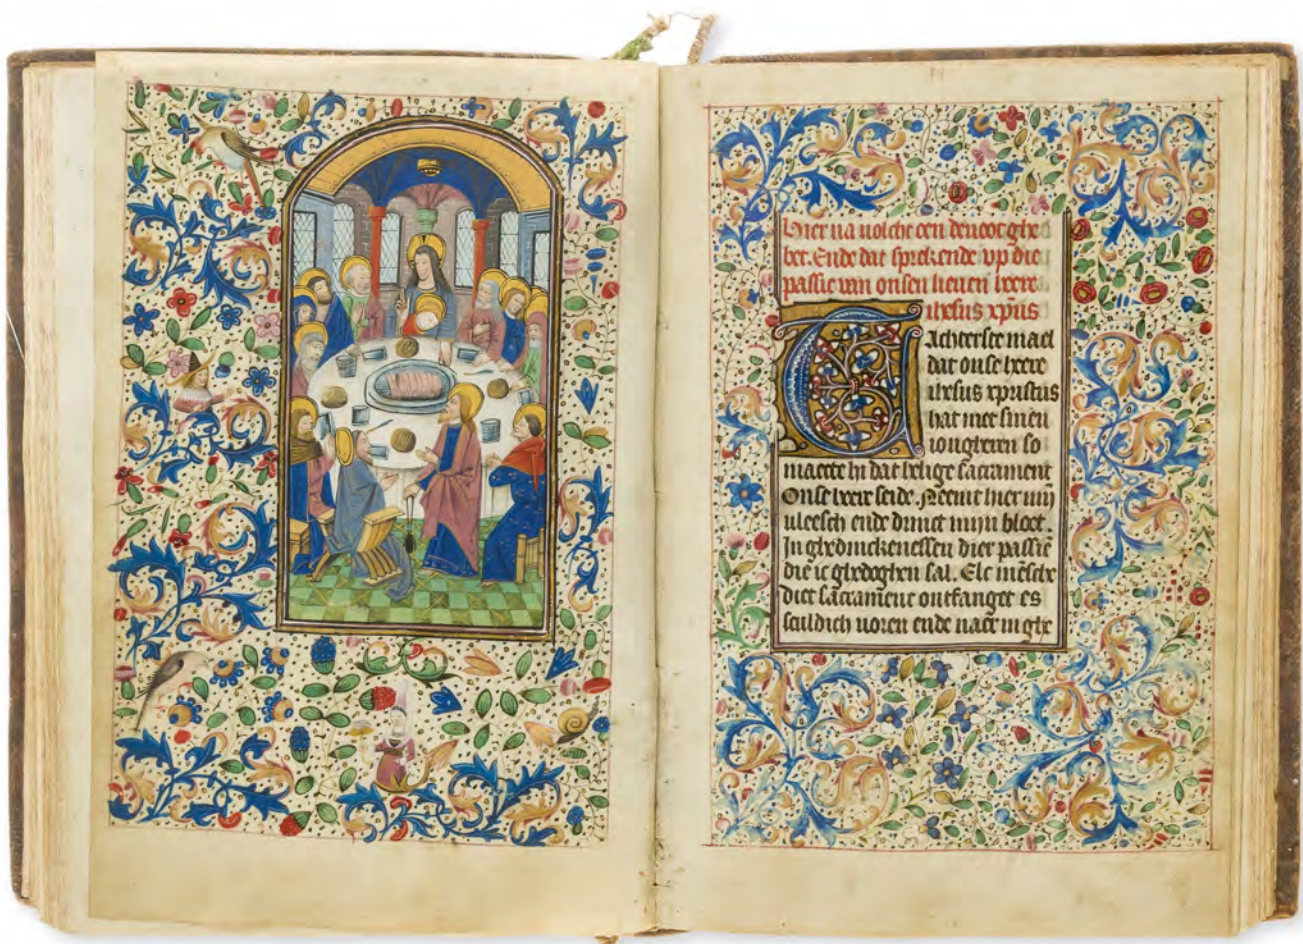 Hier na volcht een deuoot ghe
bet. Ende dat sprekende vp die
passie van onsen lieuen heere
ihesus xp̄us
Tachterste mael
dat onse heere
ihesus xpristus
hat met sinen
iongheren so
maecte hi dat helige sacrament
Onse heere seide. Neemt hier mijn
vleesch ende drinct mijn bloet.
In ghedinckenessen dier passie
die ic ghedoghen sal. Elc mēsche
diet sacrament ontfanget es
sculdich voren ende naer in ghe